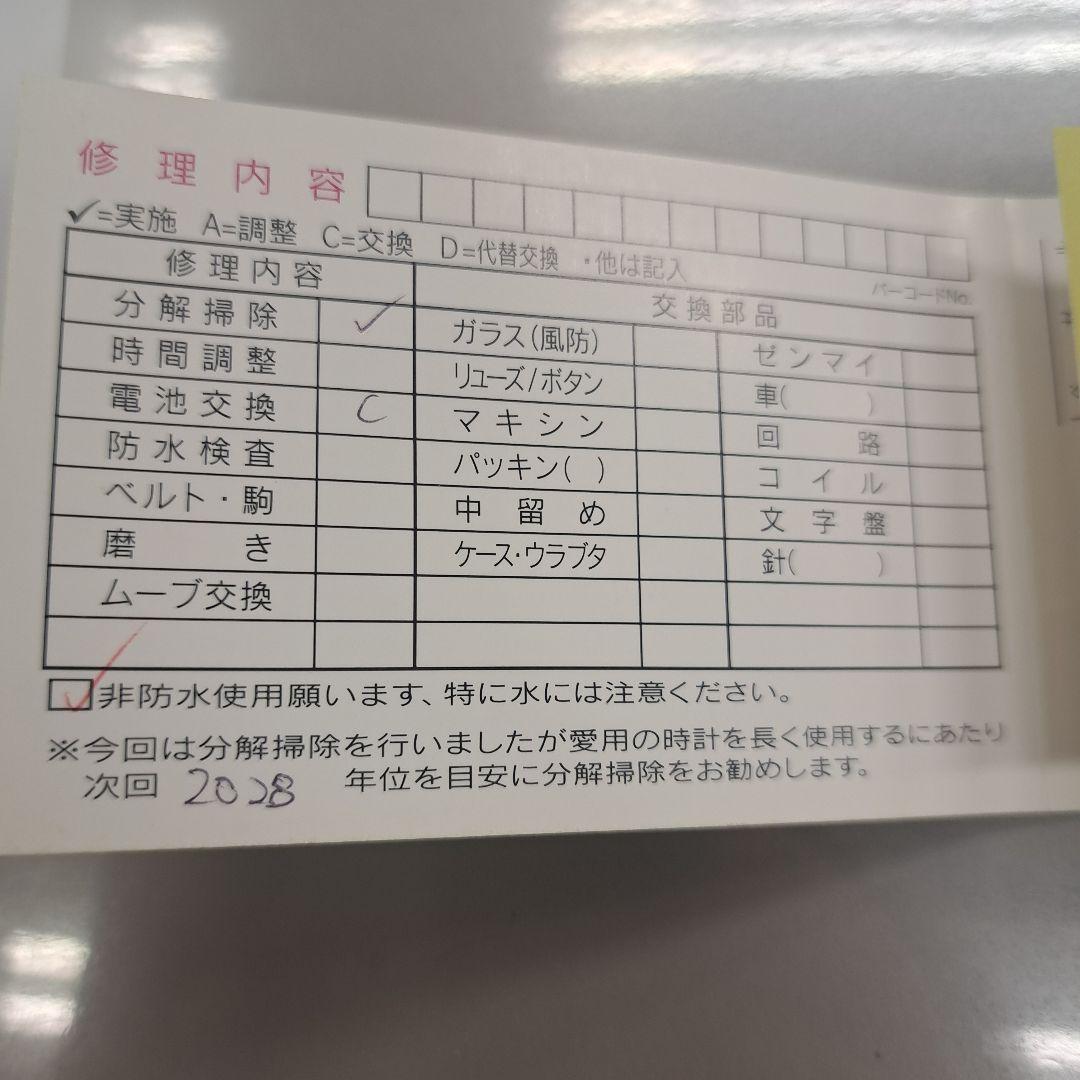 修理内容
✓=実施 A=調整 C=交換 D=代替交換 ・他は記入
バーコードNo.
修理内容 交換部品
分解掃除 ✓ ガラス(風防) ゼンマイ
時間調整 リューズ/ボタン 車( )
電池交換 C マキシン 回路
防水検査 パッキン( ) コイル
ベルト・駒 中留め 文字盤
磨き ケース・ウラブタ 針( )
ムーブ交換
✓非防水使用願います、特に水には注意ください。
※今回は分解掃除を行いましたが愛用の時計を長く使用するにあたり
次回 2028 年位を目安に分解掃除をお勧めします。